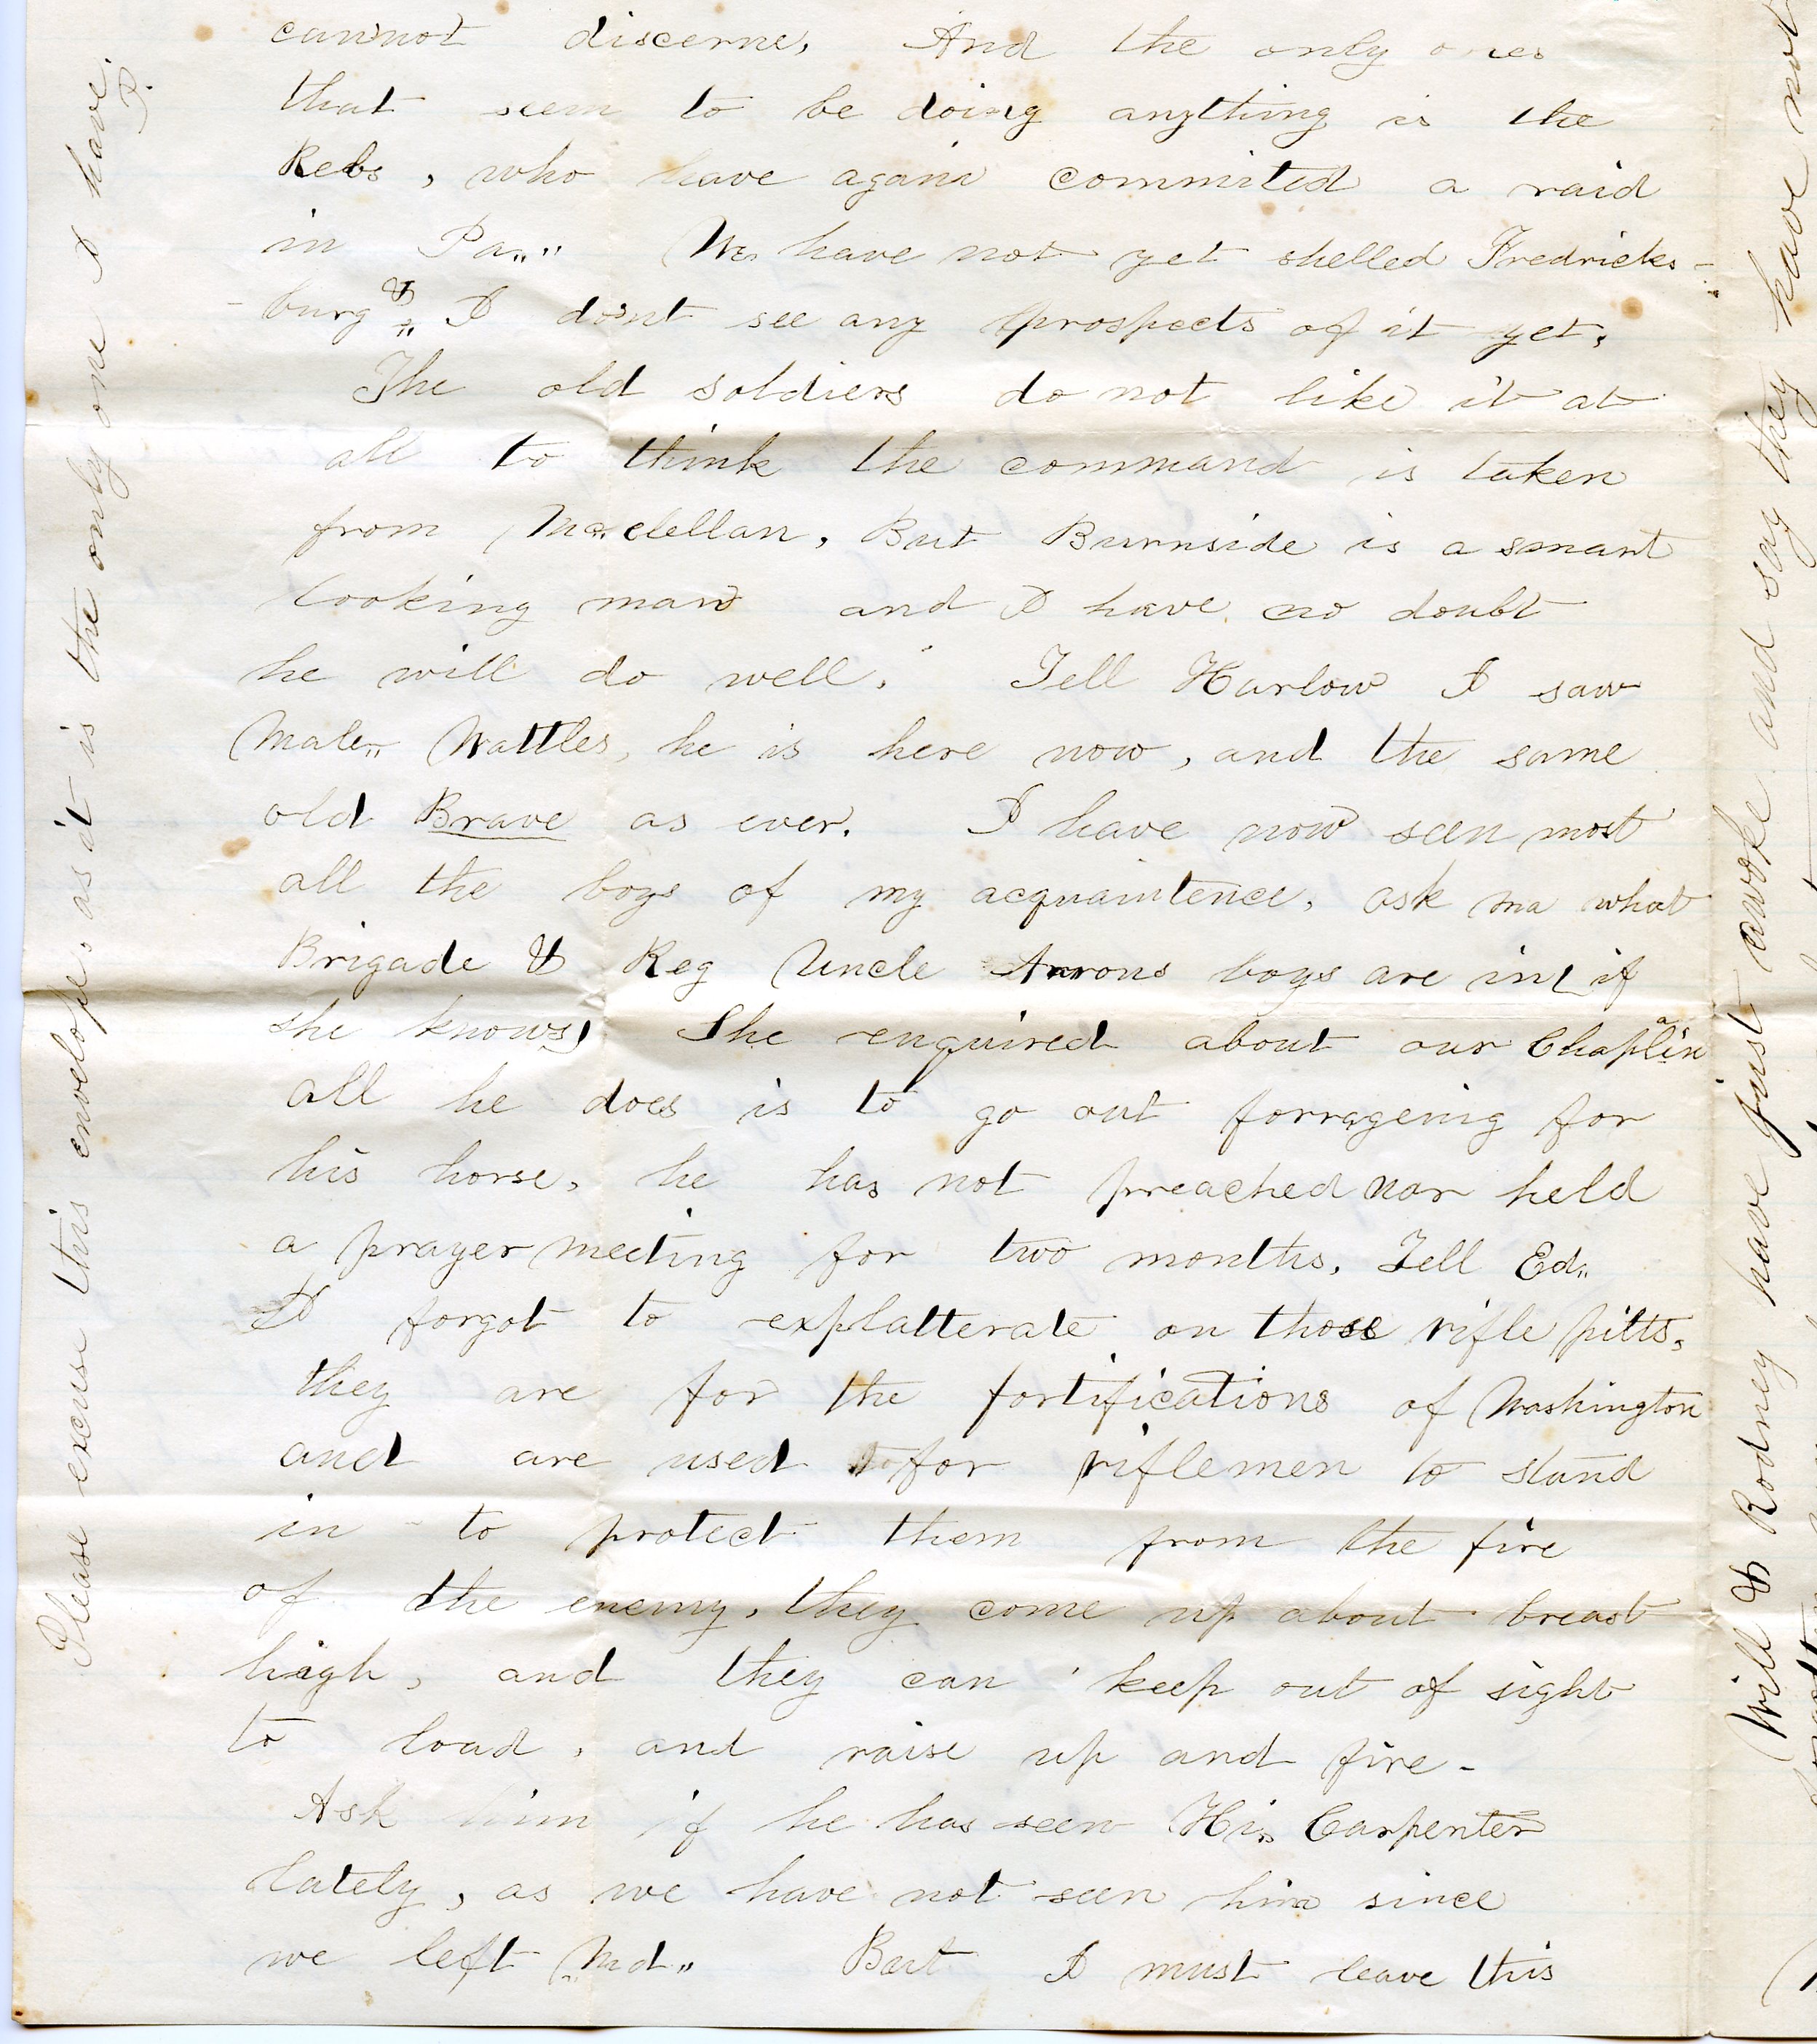 cannot discerne, And the only ones
that seem to be doing anything is the
Rebs, who have again commited a raid
in Pa,," We have not yet shelled Fredricks-
-burg & I dosnt see any prospects of it yet,
The old soldiers do not like it at
all to think the command is taken
from Mc,clellan, But Burnside is a smart
looking man and I have no doubt
he will do well. Tell Harlow I saw
Male,, Wattles, he is here now, and the same
old Brave as ever. I have now seen most
all the boys of my acquaintence, ask ma what
Brigade & Reg Uncle Arrons boys are in ( if
she knows) She enquired about our Chaplain
all he does is to go out forrageing for
his horse, he has not preached nor held
a prayer meeting for two months, Tell Ed,,
I forgot to explatterate on those rifle pitts,
they are for the fortifications of Washington
and are used for riflemen to stand
in - to protect them from the fire
of the enemy, they come up about breast
high, and they can keep out of sight
to load, and raise up and fire -
Ask him if he has seen Hi,, Carpenter
lately, as we have not seen him since
we left ,,Md,, But I must leave this
Please excuse this envelope, as it is the only one I have.
P.
Will & Rodney have just awoke and say they have not